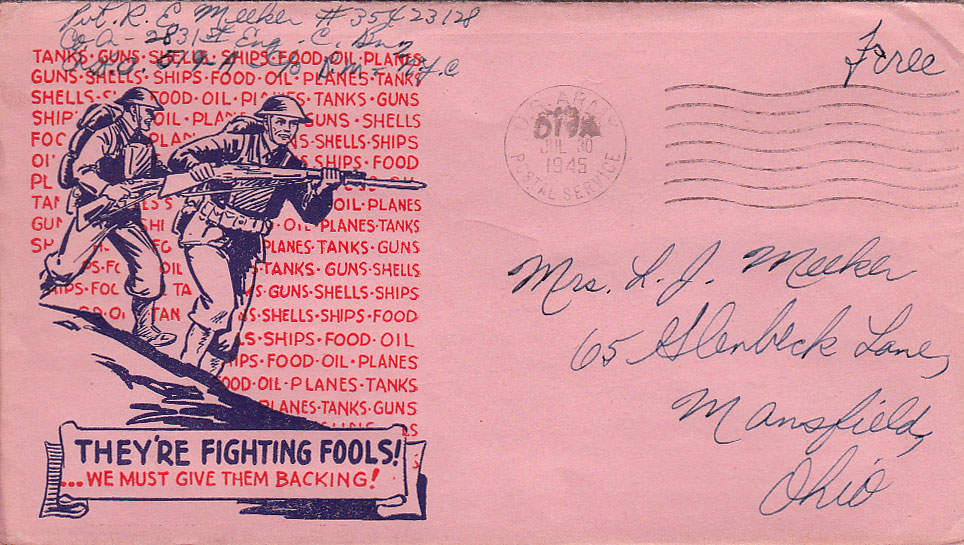 Pvt. R. E. Meeker # 35423128
Co A - 2831st Eng. C. Bn
A.P.O. C/O P.M. - N.Y.C
Free
U.S. ARMY
JUL 30
1945
POSTAL SERVICE
TANKS·GUNS·SHELLS·SHIPS·FOOD·OIL·PLANES
GUNS·SHELLS·SHIPS·FOOD·OIL·PLANES·TANKS
SHELLS·S FOOD·OIL·PLANES·TANKS·GUNS
SHIP OIL·PLAN GUNS·SHELLS
FOO PLAN SHELLS·SHIPS
OI SHIPS·FOOD
PL
TAN OIL·PLANES
GUN OIL·PLANES·TANKS
SH PLANES·TANKS·GUNS
PS·FO OIL TANKS·GUNS·SHELLS
IPS·FOO TA S·GUNS·SHELLS·SHIPS
OD·O TAN S·SHELLS·SHIPS·FOOD
LS·SHIPS·FOOD·OIL
IPS·FOOD·OIL·PLANES
OOD·OIL·PLANES·TANKS
LANES·TANKS·GUNS
LS
THEY'RE FIGHTING FOOLS!
...WE MUST GIVE THEM BACKING!
Mrs. L. J. Meeker
65 Glenbeck Lane,
Mansfield,
Ohio